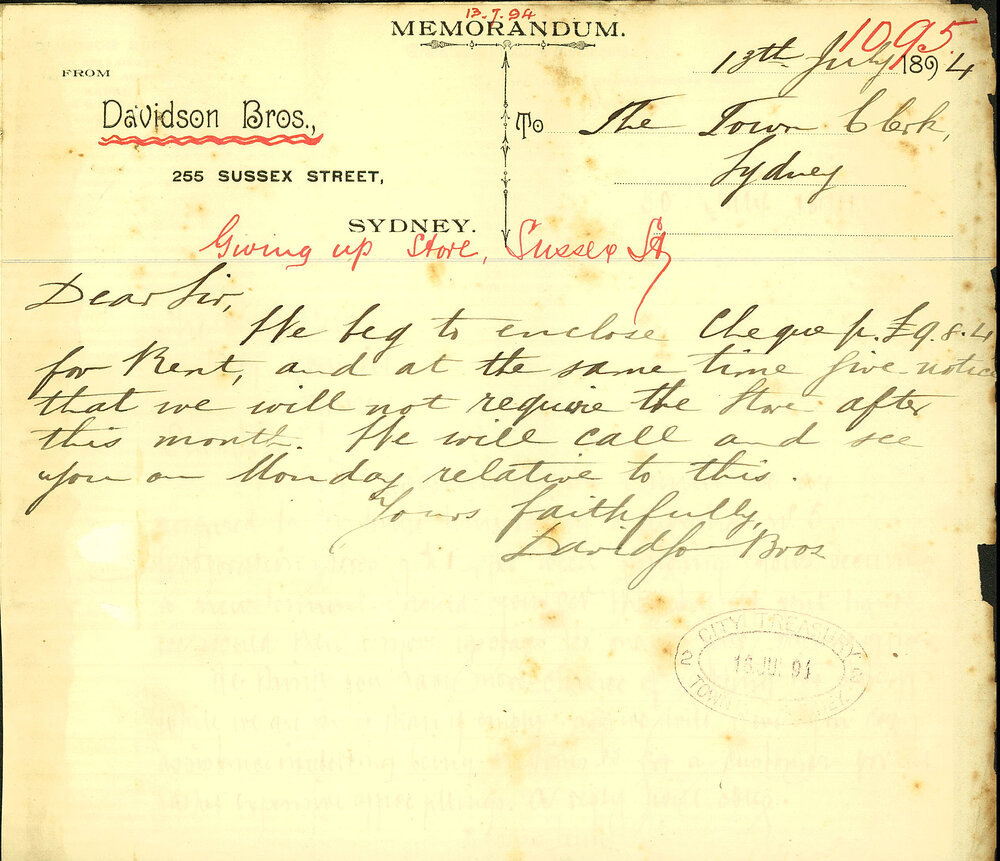 13.7.94
MEMORANDUM.
1095
13th July 1894
FROM
Davidson Bros.,
To The Town Clerk,
255 SUSSEX STREET,
Sydney
SYDNEY.
Giving up Store, Sussex St
Dear Sir,
We beg to enclose Cheque p. £9.8.4
for Rent, and at the same time give notice
that we will not require the Store after
this month. We will call and see
you on Monday relative to this.
Yours faithfully,
Davidson Bros
CITY TREASURY
2 16 JUL 94 2
TOWN